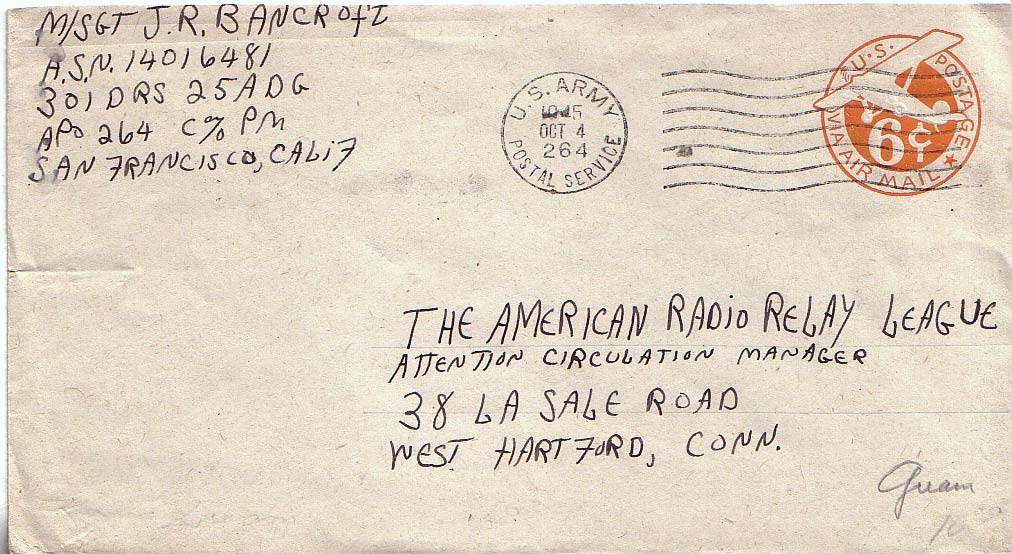 M/SGT J.R. BANCROft
A.S.N. 14016481
301 DRS 25 ADG
APO 264 C% PM
SAN FRANCISCO, CALIF
U.S. ARMY
OCT 4
264
POSTAL SERVICE
U.S. POSTAGE
6¢
VIA AIR MAIL
THE AMERICAN RADiO RELAY LEAGUE
ATTENTION CIRCULATION MANAGER
38 LA SALE ROAD
WEST HARTFORD, CONN.
Guam